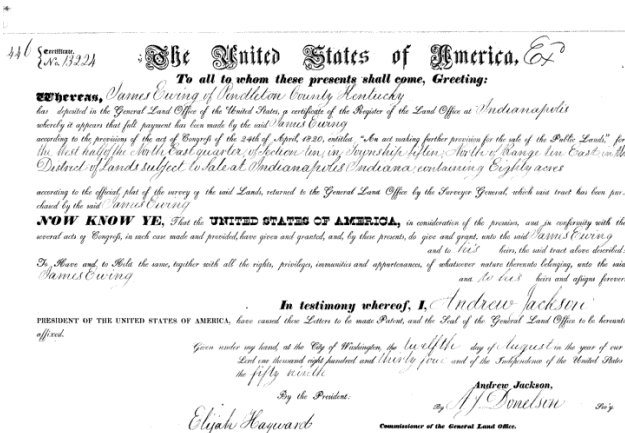 446 {Certificate. No. 13224
The United States of America, Ex^d
To all to whom these presents shall come, Greeting:
Whereas, James Ewing of Pendleton County Kentucky
has deposited in the General Land Office of the United States, a certificate of the Register of the Land Office at Indianapolis
whereby it appears that full payment has been made by the said James Ewing
according to the provisions of the act of Congress of the 24th of April, 1820, entitled "An act making further provision for the sale of the Public Lands," for
the West half of the North East quarter of Section ten, in Township fifteen, North of Range ten East in the
District of Lands subject to Sale at Indianapolis Indiana, containing Eighty acres
according to the official plat of the survey of the said Lands, returned to the General Land Office by the Surveyor General, which said tract has been pur-
chased by the said James Ewing
NOW KNOW YE, That the UNITED STATES OF AMERICA, in consideration of the premises, and in conformity with the
several acts of Congress, in such case made and provided, have given and granted, and, by these presents, do give and grant, unto the said James Ewing
and to his heirs, the said tract above described:
To Have and to Hold the same, together with all the rights, privileges, immunities and appurtenances, of whatsoever nature thereunto belonging, unto the said
James Ewing and to his heirs and assigns forever.
In testimony whereof, I, Andrew Jackson
PRESIDENT OF THE UNITED STATES OF AMERICA, have caused these Letters to be made Patent, and the Seal of the General Land Office to be hereunto
affixed.
Given under my hand, at the City of Washington, the twelfth day of August in the year of our
Lord one thousand eight hundred and thirty four and of the Independence of the United States
the fifty ninth
By the President: Andrew Jackson,
By A J Donelson Sec'y.
Elijah Hayward Commissioner of the General Land Office.